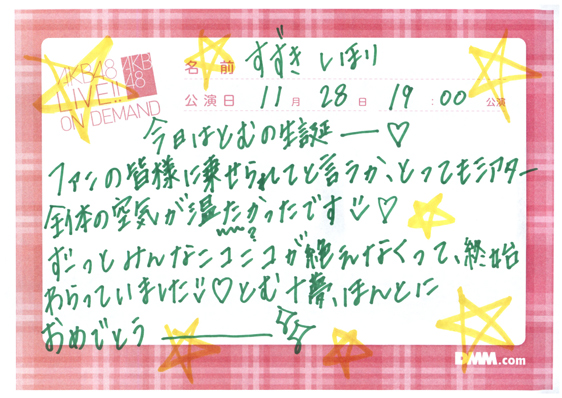 AKB48
LIVE!!
ON DEMAND
AKB
48
名 前 すずき しほり
公演日 11 月 28 日 19 : 00 公演
今日はとむの生誕ー♡
ファンの皆様に乗せられてと言うか、とってもシアター
全体の空気が温たかったです♡
?
ずーっとみんなニコニコが絶えなくって、終始
わらっていました♡とむ十夢、ほんとに
おめでとう
DMM.com